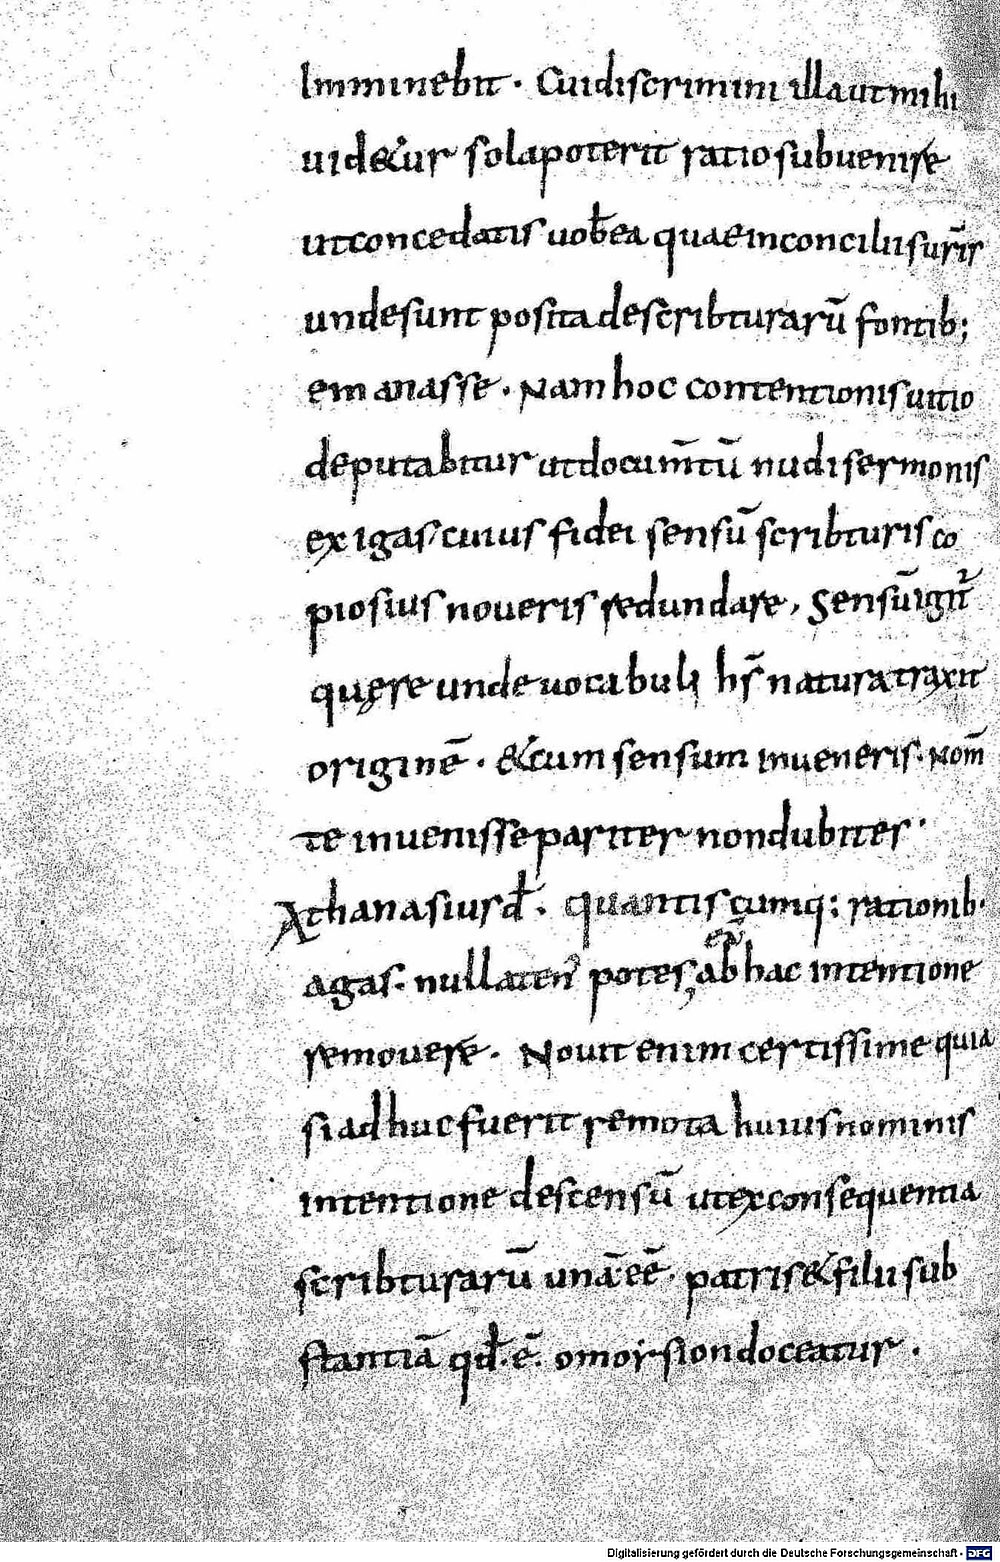 Imminebit · Cui discrimini illa ut mihi
uid&ur sola poterit ratio subuenire
ut concedatis uob̄ ea quae in conciliis ur̄is
unde sunt posita de scribturarū fontib;
emanasse · Nam hoc contentionis uitio
deputabitur ut docum̄tū nudi sermonis
exigas cuius fidei sensū scribturis co
piosius noueris redundare, Sensū igit͛
quęre unde uocabuli hs̄ natura traxit
originē · & cum sensum inueneris · Nom̄
te inuenisse pariter non dubites ·
Athanasius d̄ · quantiscumq; rationib·
agas · nullaten᾽ potes ab hac intentione
remouere · Nouit enim certissime quia
si adhuc fuerit remota huius nominis
intentione descensū ut ex consequentia
scribturarū unā eē · patris & filii sub
stantiā qd̄ · ē · omoysion doceatur ·
Digitalisierung gefördert durch die Deutsche Forschungsgemeinschaft - DFG